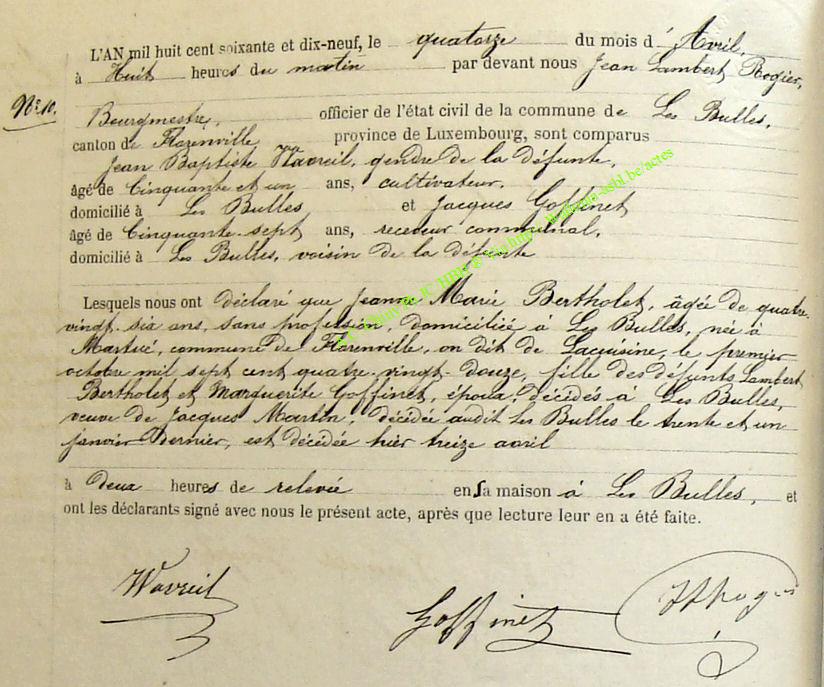 L'AN mil huit cent soixante et dix-neuf, le quatorze du mois d'Avril,
à Huit heures du matin par devant nous Jean Lambert Rogier,
No 10.
Bourgmestre, officier de l'état civil de la commune de Les Bulles,
canton de Florenville, province de Luxembourg, sont comparus
Jean Baptiste Wavreil, gendre de la défunte,
âgé de Cinquante et un ans, cultivateur,
domicilié à Les Bulles et Jacques Goffinet
âgé de Cinquante-sept ans, receveur communal,
domicilié à Les Bulles, voisin de la défunte
Lesquels nous ont déclaré que Jeanne Marie Bertholet, âgée de quatre-
vingt-six ans, sans profession, domiciliée à Les Bulles, née à
Martué, commune de Florenville, on dit de Lacuisine, le premier
octobre mil sept cent quatre-vingt-douze, fille des défunts Lambert
Bertholet et Marguerite Goffinet, époux, décédés à Les Bulles,
veuve de Jacques Martin, décédée audit Les Bulles le trente et un
janvier dernier, est décédée hier treize avril
à deux heures de relevée en sa maison à Les Bulles, et
ont les déclarants signé avec nous le présent acte, après que lecture leur en a été faite.
Wavreil
Goffinet
asbl.be/actes